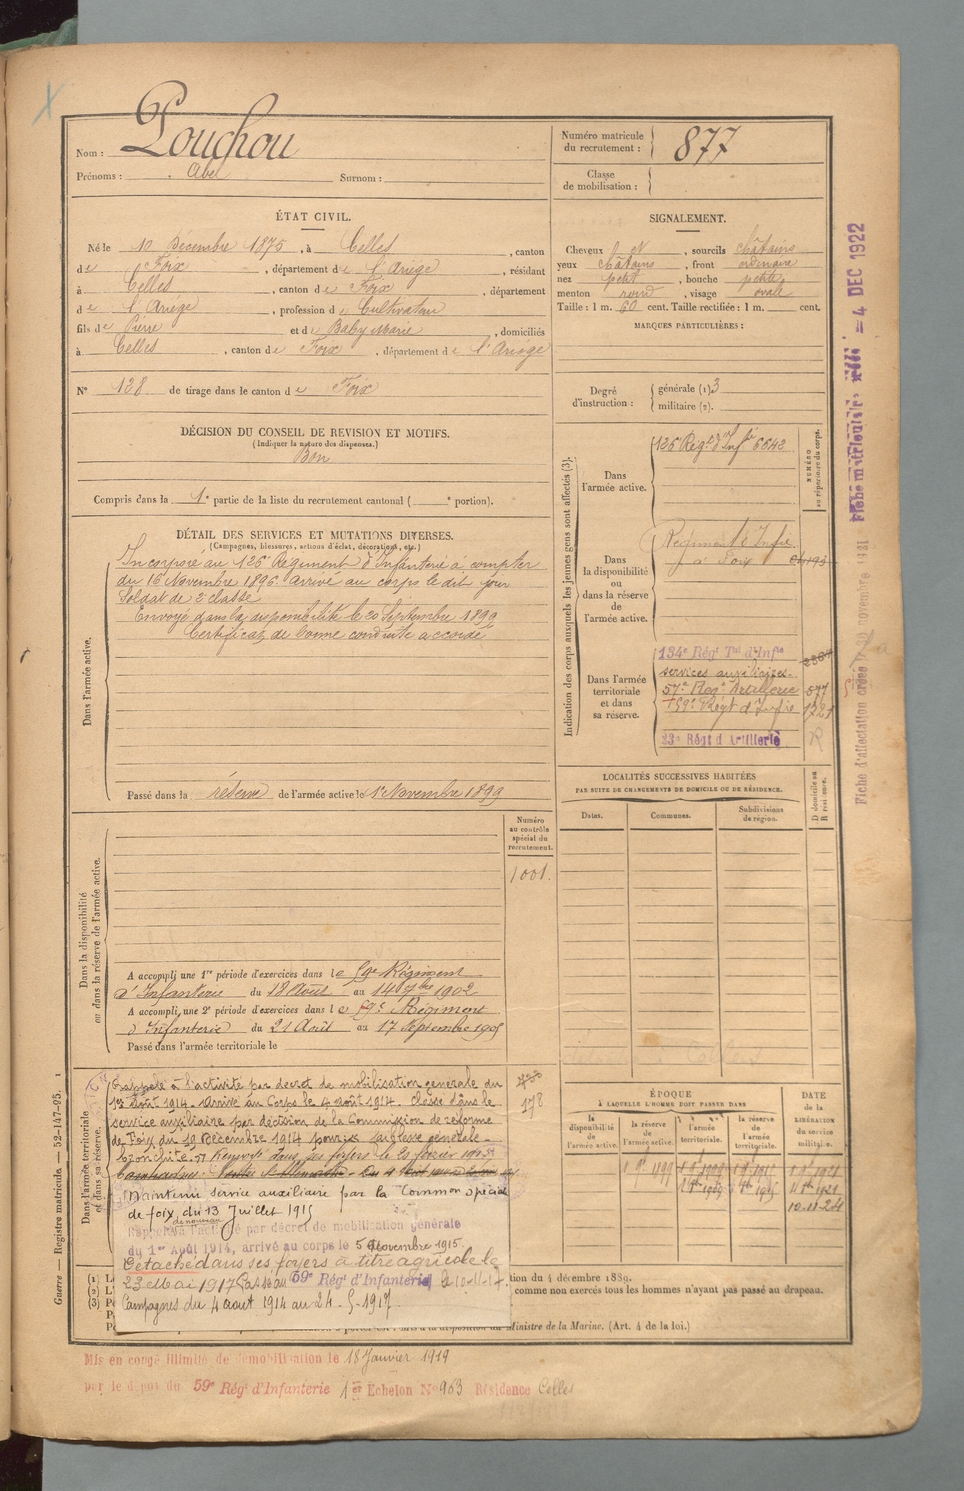 Nom : Pouchou
Prénoms : Abel Surnom :
Numéro matricule du recrutement : 877
Classe de mobilisation :
ÉTAT CIVIL.
Né le 10 Décembre 1875, à Celles, canton
de Foix, département de l'Ariège, résidant
à Celles, canton de Foix, département
de l'Ariège, profession de Cultivateur
fils de Pierre et de Baby Marie, domiciliés
à Celles, canton de Foix, département de l'Ariège
N° 128 de tirage dans le canton de Foix
SIGNALEMENT.
Cheveux, sourcils châtains
yeux châtains, front ordinaire
nez petit, bouche petite
menton rond, visage ovale
Taille : 1 m. 60 cent. Taille rectifiée : 1 m. cent.
MARQUES PARTICULIÈRES :
Degré d'instruction : générale (1) 3
militaire (2).
DÉCISION DU CONSEIL DE REVISION ET MOTIFS.
(Indiquer la nature des dispenses.)
Bon
Compris dans la 1e partie de la liste du recrutement cantonal ( e portion).
DÉTAIL DES SERVICES ET MUTATIONS DIVERSES.
(Campagnes, blessures, actions d'éclat, décorations, etc.)
Dans l'armée active.
Incorporé au 126e Régiment d'Infanterie à compter
du 16 Novembre 1896. arrivé au corps le dit jour
Soldat de 2e classe
Envoyé dans la disponibilité le 20 Septembre 1899
Certificat de bonne conduite accordé
Passé dans la réserve de l'armée active le 1er Novembre 1899
Indication des corps auxquels les jeunes gens sont affectés (3).
NUMÉRO au répertoire du corps.
Dans l'armée active.
126 Régt d'Infie 6642
Dans la disponibilité ou dans la réserve de l'armée active.
Régiment d'Infie
à Foix
Dans l'armée territoriale et dans sa réserve.
134e Régt Tal d'Infie
services auxiliaires
57e Reg. Artillerie 877
59e Régt d'Infie 1221
23e Régt d'Artillerie R
LOCALITÉS SUCCESSIVES HABITÉES
PAR SUITE DE CHANGEMENTS DE DOMICILE OU DE RÉSIDENCE.
Dates. Communes. Subdivisions de région. D domicile ou R résidence.
Numéro au contrôle spécial du recrutement.
1001
Dans la disponibilité ou dans la réserve de l'armée active.
A accompli une 1re période d'exercices dans le 59e Régiment
d'Infanterie du 18 Août au 14 7bre 1902
A accompli une 2e période d'exercices dans le 59e Régiment
d'Infanterie du 21 Août au 17 Septembre 1905
Passé dans l'armée territoriale le
Dans l'armée territoriale et dans sa réserve.
178
Rappelé à l'activité par décret de mobilisation générale du
1er Août 1914. Arrivé au Corps le 4 août 1914. Classé dans le
service auxiliaire par décision de la Commission de réforme
de Foix du 19 Décembre 1914 pour faiblesse générale -
bronchite. Renvoyé dans ses foyers le 20 février 1915
Maintenu service auxiliaire par la Common spéciale
de foix, du 13 Juillet 1915
de nouveau
Rappelé à l'activité par décret de mobilisation générale
du 1er Août 1914, arrivé au corps le 5 Novembre 1915.
Détaché dans ses foyers à titre agricole le
23 Mai 1917. Passé au 59e Régt d'Infanterie
Campagnes du 4 aout 1914 au 24-5-1917
ÉPOQUE
À LAQUELLE L'HOMME DOIT PASSER DANS
la disponibilité de l'armée active. la réserve de l'armée active. l'armée territoriale. la réserve de l'armée territoriale.
DATE de la LIBÉRATION du service militaire.
10-11-24
tion du 4 décembre 1889.
comme non exercés tous les hommes n'ayant pas passé au drapeau.
Ministre de la Marine. (Art. 4 de la loi.)
Mis en congé illimité de démobilisation le 18 Janvier 1919
par le dépôt du 59e Régt d'Infanterie 1er Echelon N° 963 Résidence Celles
Guerre — Registre matricule. — 52-147-95.
Fiche matriculaire = 4 DEC 1922
Fiche d'affectation créée